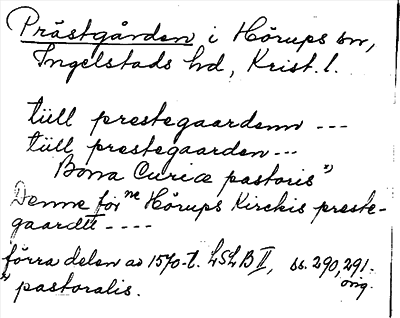 Prästgården i Hörups sn,
Ingelstads hd, Krist. l.
tüll prestegaardenn ---
tüll prestegaarden ---
Bona Curiæ pastoris ")
Denne för ne Hörups Kirckis preste-
gaardtt ----
förra delen av 1570-t. LSLB II, ss. 290, 291.
orig.
") pastoralis.